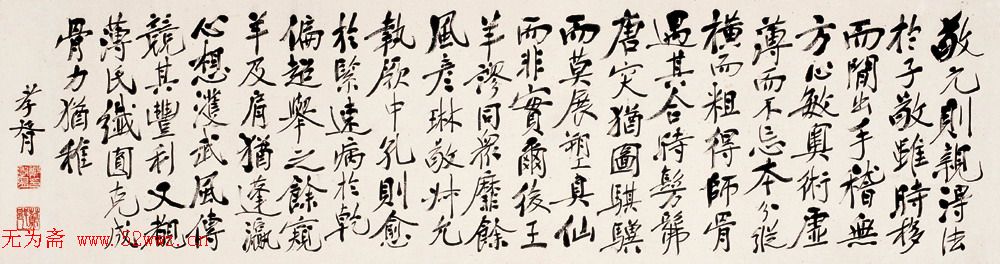 敬元則親得法
於子敬雖時移
而閒出手稽無
方心敏奧術虛
薄而不忘本分縱
橫而粗得師骨
遇其合時髣髴
唐突猶圖騏驥
而莫展塑真仙
而非實爾後王
羊謬同眾靡餘
風彥琳敬叔允
執厥中孔則愈
於緊速病於乾
偏超舉之餘窺
羊及肩猶蓬瀛
心想濩武風儔
競其豐利又觀
薄氏纖圓克成
骨力猶稚
孝胥
无为斋 www.782wwz.cn